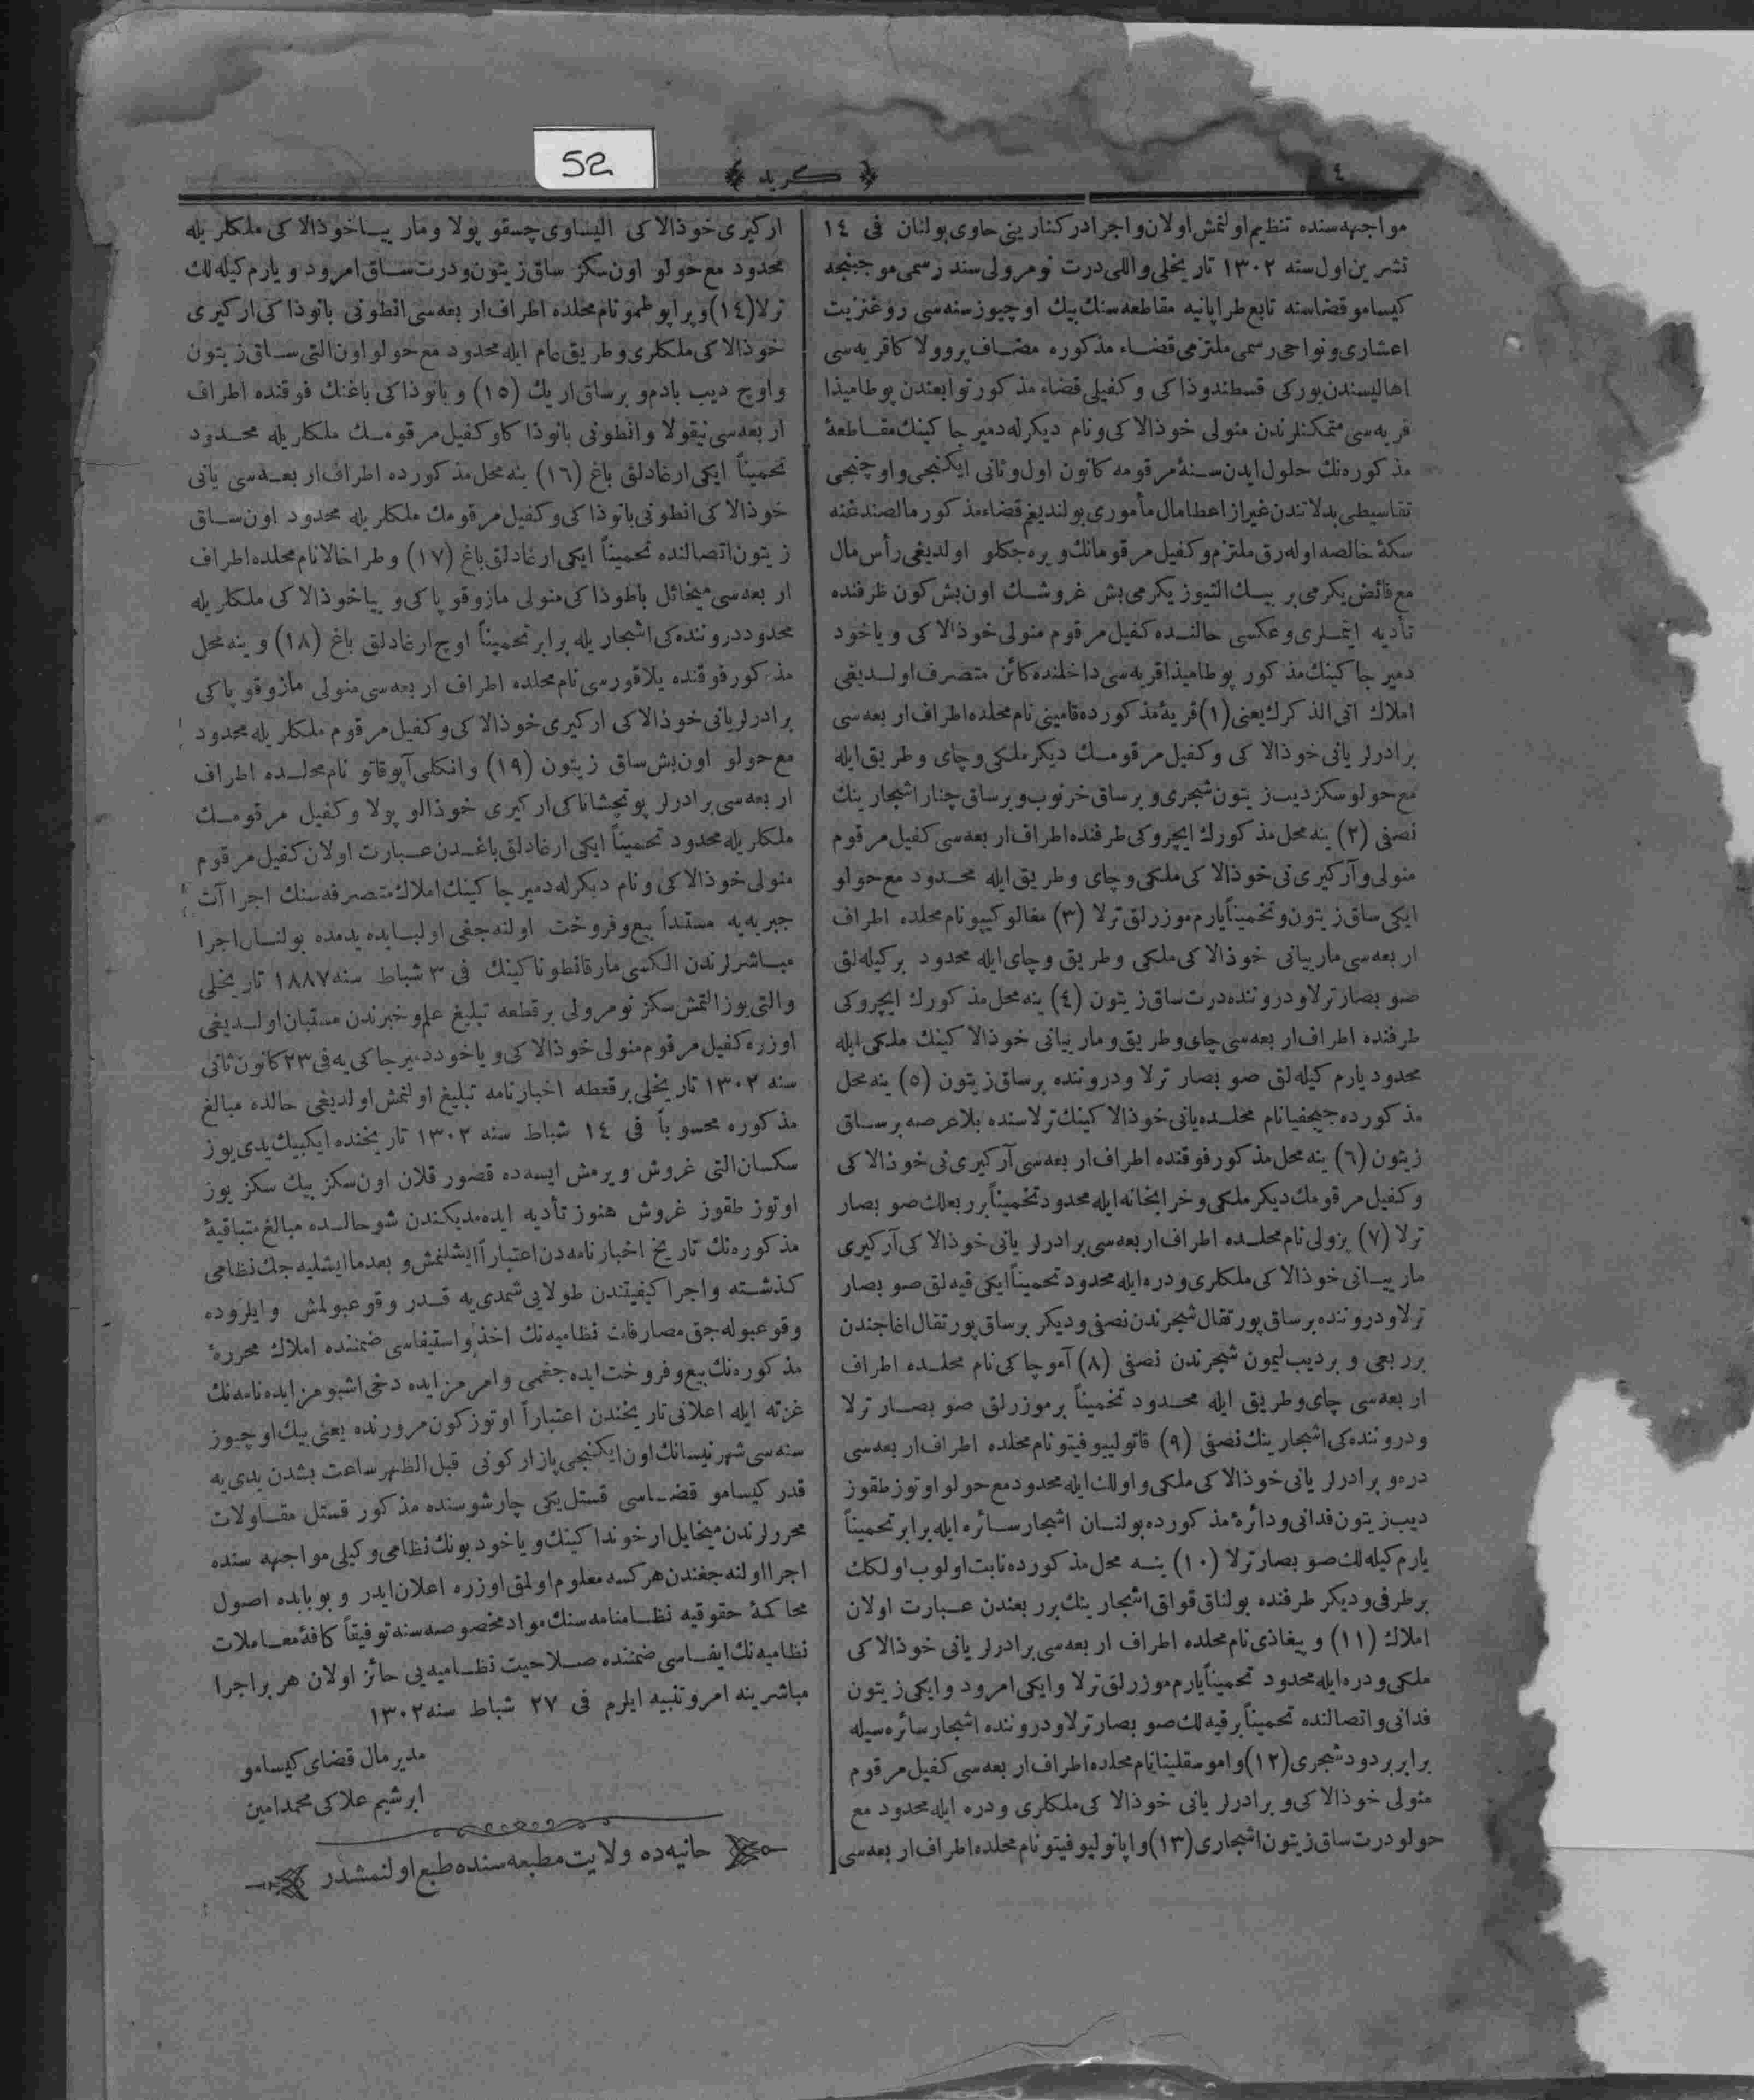 52
٤
﴿ كريد ﴾
مواجهه سنده تنظيم اولنمش اولان واجرادر كنارينى حاوى بولنان فى ١٤
تشرين اول سنه ١٣٠٢ تاريخلى واللى درت نومرولى سند رسمى موجبنجه
كيسامو قضاسنه تابع طراپانيه مقاطعه سنك بيك اوچيوز سنه سى روغنزيت
اعشارى ونواحى رسمى ملتزمى قضاء مذكوره مضاف پروولا كا قريه سى
اهاليسندن يوركى قسطندوذاكى وكفيلى قضاء مذكور توابعندن پوطاميذا
قريه سى متمكنلرندن منولى خوذالاكى ونام ديكرله دمير جاكينك مقاطعۀ
مذكوره نك حلول ايدن سنۀ مرقومه كانون اول وثانى ايكنجى واوچنجى
تقاسيطى بدلاتندن غير از اعطا مال مأمورى بولنديغم قضاء مذكور مالصندغنه
سكۀ خالصه اوله رق ملتزم وكفيل مرقومانك ويره جكلو اولديغى رأس مال
مع فائض يكرمى بر بيك التيوز يكرمى بش غروشك اون بش كون ظرفنده
تأديه ايتملرى وعكسى حالنده كفيل مرقوم منولى خوذالاكى وياخود
دمير جاكينك مذكور پوطاميذا قريه سى داخلنده كائن متصرف اولديغى
املاك اتى الذكرك يعنى (١) قريۀ مذكورده قامينى نام محلده اطراف اربعه سى
برادرلر يانى خوذالاكى وكفيل مرقومك ديكر ملكى وچاى وطريق ايله
مع حولو سكز ديب زيتون شجرى وبر ساق خرنوب وبر ساق چنار اشجارينك
نصفى (٢) ينه محل مذكورك ايچروكى طرفنده اطراف اربعه سى كفيل مرقوم
منولى وآركيرى نى خوذالاكى ملكى وچاى وطريق ايله محدود مع حولو
ايكى ساق زيتون وتخميناً يارم موزرلق ترلا (٣) مغالو كيپو نام محلده اطراف
اربعه سى ماريانى خوذالاكى ملكى وطريق وچاى ايله محدود بر كيله لق
صو بصار ترلا ودروننده درت ساق زيتون (٤) ينه محل مذكورك ايچروكى
طرفنده اطراف اربعه سى چاى وطريق وماريانى خوذالاكينك ملكى ايله
محدود يارم كيله لق صو بصار ترلا ودروننده بر ساق زيتون (٥) ينه محل
مذكورده جيجفيا نام محلده يانى خوذالاكينك ترلاسنده بلا عرصه بر ساق
زيتون (٦) ينه محل مذكور فوقنده اطراف اربعه سى آركيرى نى خوذالاكى
وكفيل مرقومك ديكر ملكى وخرابخانه ايله محدود تخميناً بر ربعلك صو بصار
ترلا (٧) پزولى نام محلده اطراف اربعه سى برادرلر يانى خوذالاكى آركيرى
ماريانى خوذالاكى ملكلرى ودره ايله محدود تخميناً ايكى قيه لق صو بصار
ترلا ودروننده بر ساق پورتقال شجرندن نصفى وديكر بر ساق پورتقال اغاجندن
بر ربعى وبر ديب ليمون شجرندن نصفى (٨) آموچاكى نام محلده اطراف
اربعه سى چاى وطريق ايله محدود تخميناً بر موزرلق صو بصار ترلا
ودروننده كى اشجارينك نصفى (٩) قاتوليبوفيتو نام محلده اطراف اربعه سى
دره وبرادرلر يانى خوذالاكى ملكى واولك ايله محدود مع حولو اوتوز طقوز
ديب زيتون فدانى ودائرۀ مذكورده بولنان اشجار سائره ايله برابر تخميناً
يارم كيله لك صو بصار ترلا (١٠) ينه محل مذكورده نابت اولوب اولكك
بر طرفى وديكر طرفنده بولناق قواق اشجارينك بر ربعندن عبارت اولان
املاك (١١) وپيغاذى نام محلده اطراف اربعه سى برادرلر يانى خوذالاكى
ملكى ودره ايله محدود تخميناً يارم موزرلق ترلا وايكى امرود وايكى زيتون
فدانى واتصالنده تخميناً بر قيه لك صو بصار ترلا ودروننده اشجار سائره سيله
برابر بر دود شجرى (١٢) واموسقليتا نام محلده اطراف اربعه سى كفيل مرقوم
منولى خوذالاكى وبرادرلر يانى خوذالاكى ملكلرى ودره ايله محدود مع
حولو درت ساق زيتون اشجارى (١٣) واپانوليوفيتو نام محلده اطراف اربعه سى
اركيرى خوذالاكى اليساوى چسقو پولا وماريسا خوذالاكى ملكلريله
محدود مع حولو اون سكز ساق زيتون ودرت ساق امرود ويارم كيله لك
ترلا (١٤) وپراپوطمو نام محلده اطراف اربعه سى انطونى بانوذاكى اركيرى
خوذالاكى ملكلرى وطريق عام ايله محدود مع حولو اون التى ساق زيتون
واوچ ديب بادم وبر ساق اريك (١٥) وبانوذاكى باغنك فوقنده اطراف
اربعه سى نيقولا وانطونى بانوذاكا وكفيل مرقومك ملكلريله محدود
تخميناً ايكى ارغادلق باغ (١٦) ينه محل مذكورده اطراف اربعه سى يانى
خوذالاكى انطونى بانوذاكى وكفيل مرقومك ملكلريله محدود اون ساق
زيتون اتصالنده تخميناً ايكى ارغادلق باغ (١٧) وطراخالا نام محلده اطراف
اربعه سى ميخائل باطوذاكى منولى مازوقوپاكى وپيا خوذالاكى ملكلريله
محدود دروننده كى اشجاريله برابر تخميناً اوچ ارغادلق باغ (١٨) وينه محل
مذكور فوقنده يلاقورسى نام محلده اطراف اربعه سى منولى مازوقوپاكى
برادرلر يانى خوذالاكى اركيرى خوذالاكى وكفيل مرقوم ملكلريله محدود
مع حولو اون بش ساق زيتون (١٩) وانكلى آپوقاتو نام محلده اطراف
اربعه سى برادرلر پوتچشاناكى اركيرى خوذالوپولا وكفيل مرقومك
ملكلريله محدود تخميناً ايكى ارغادلق باغدن عبارت اولان كفيل مرقوم
منولى خوذالاكى ونام ديكرله دمير جاكينك املاك متصرفه سنك اجراآت
جبريه يه مستنداً بيع وفروخت اولنه جغى اولبابده يدمده بولنان اجرا
مباشرلرندن الكسى مارقانطوناكينك فى ٣ شباط سنه ١٨٨٧ تاريخلى
والتى يوز التمش سكز نومرولى بر قطعه تبليغ علم وخبرندن مستبان اولديغى
اوزره كفيل مرقوم منولى خوذالاكى وياخود دميرجاكى يه فى ٢٣ كانون ثانى
سنه ١٣٠٢ تاريخلى بر قطعه اخبارنامه تبليغ اولنمش اولديغى حالده مبالغ
مذكوره محسوباً فى ١٤ شباط سنه ١٣٠٢ تاريخنده ايكيبيك يدى يوز
سكسان التى غروش ويرمش ايسه ده قصور قلان اون سكز بيك سكز يوز
اوتوز طقوز غروش هنوز تأديه ايده مديكندن شو حالده مبالغ متباقيۀ
مذكوره نك تاريخ اخبارنامه دن اعتباراً ايشلنمش وبعدما ايشليه جك نظامى
كذشته واجرا كيفيتندن طولايى شمدى يه قدر وقوعبولمش وايلروده
وقوعبوله جق مصارفات نظاميه نك اخذ واستيفاسى ضمننده املاك محررۀ
مذكوره نك بيع وفروخت ايده جغمى وامر مزايده دخى اشبو مزايده نامه نك
غزته ايله اعلانى تاريخندن اعتباراً اوتوز كون مرورنده يعنى بيك اوچيوز
سنه سى شهر نيسانك اون ايكنجى پازار كونى قبل الظهر ساعت بشدن يدى يه
قدر كيسامو قضاسى قستل يكى چارشوسنده مذكور قستل مقاولات
محررلرندن ميخايل ارخونداكينك وياخود بونك نظامى وكيلى مواجهه سنده
اجرا اولنه جغندن هركسه معلوم اولمق اوزره اعلان ايدر وبو بابده اصول
محاكمۀ حقوقيه نظامنامه سنك مواد مخصوصه سنه توفيقاً كافۀ معاملات
نظاميه نك ايفاسى ضمننده صلاحيت نظاميه يى حائز اولان هر بر اجرا
مباشرينه امر وتنبيه ايلرم فى ٢٧ شباط سنه ١٣٠٢
مدير مال قضاى كيسامو
ابرشيم علاكى محمد امين
حانيه ده ولايت مطبعه سنده طبع اولنمشدر